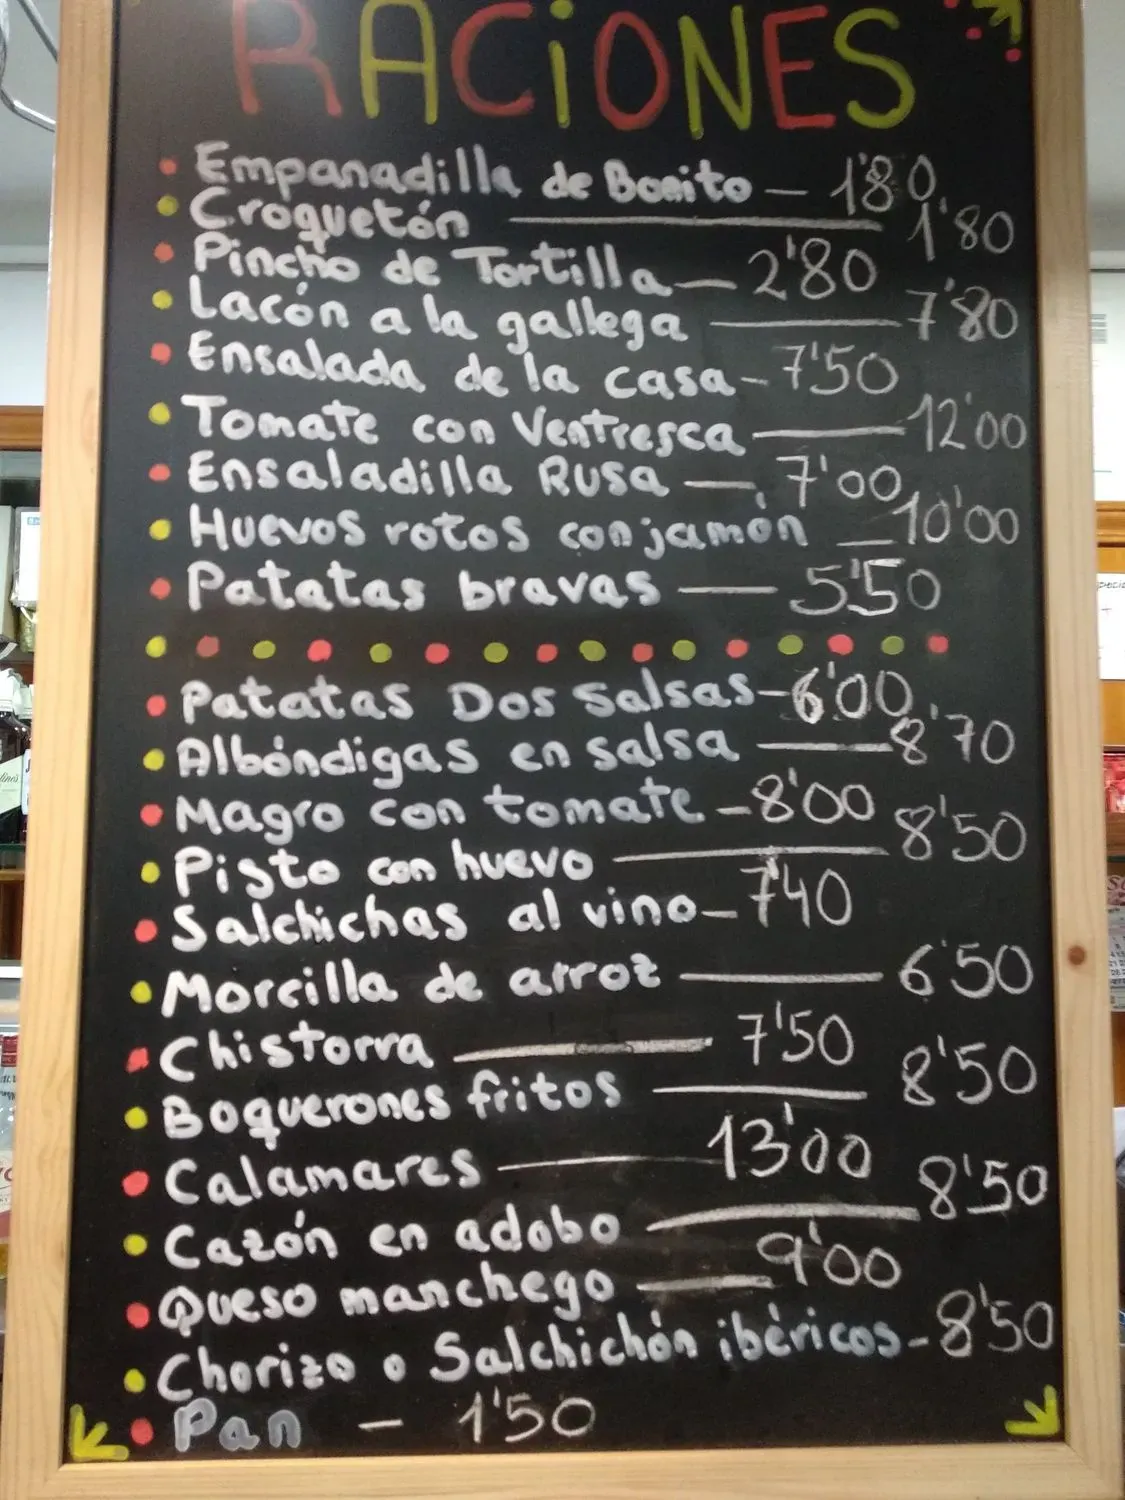 RACiONES
Empanadilla de Bonito — 1'80
Croquetón — 1'80
Pincho de Tortilla — 2'80
Lacón a la gallega — 7'80
Ensalada de la casa - 7'50
Tomate con Ventresca — 12'00
Ensaladilla Rusa — 7'00
Huevos rotos con jamón — 10'00
Patatas bravas — 5'50
Patatas Dos Salsas - 6'00
Albóndigas en salsa — 8'70
Magro con tomate - 8'00
Pisto con huevo — 8'50
Salchichas al vino - 7'40
Morcilla de arroz — 6'50
Chistorra — 7'50
Boquerones fritos — 8'50
Calamares — 13'00
Cazón en adobo — 8'50
Queso manchego — 9'00
Chorizo o Salchichón ibéricos - 8'50
Pan — 1'50